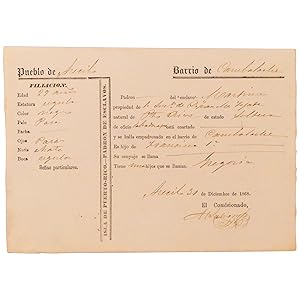 Pueblo de Arecibo
Barrio de Cambalache
FILIACION.
Edad 29 años
Estatura regular
Color negro
Pelo Pasa
Facha
Ojos Pardos
Nariz chata
Boca regular
Señas particulares.
ISLA DE PUERTO-RICO.—PADRON DE ESCLAVOS.
Padron del esclavo Martina
propiedad de
natural de Pto Rico de estado Soltera
de oficio labradora
y se halla empadronado en el barrio de Cambalache
hijo de Francisca
Su conyuge se llama
Tiene una hijos que se llaman Gregoria
Arecibo 31 de Diciembre de 1868.
El Comisionado,